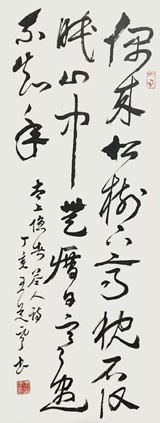 偶来松樹下高枕石頭
眠山中無曆日寒盡
不知年
太上隱者答人詩
丁亥王
書